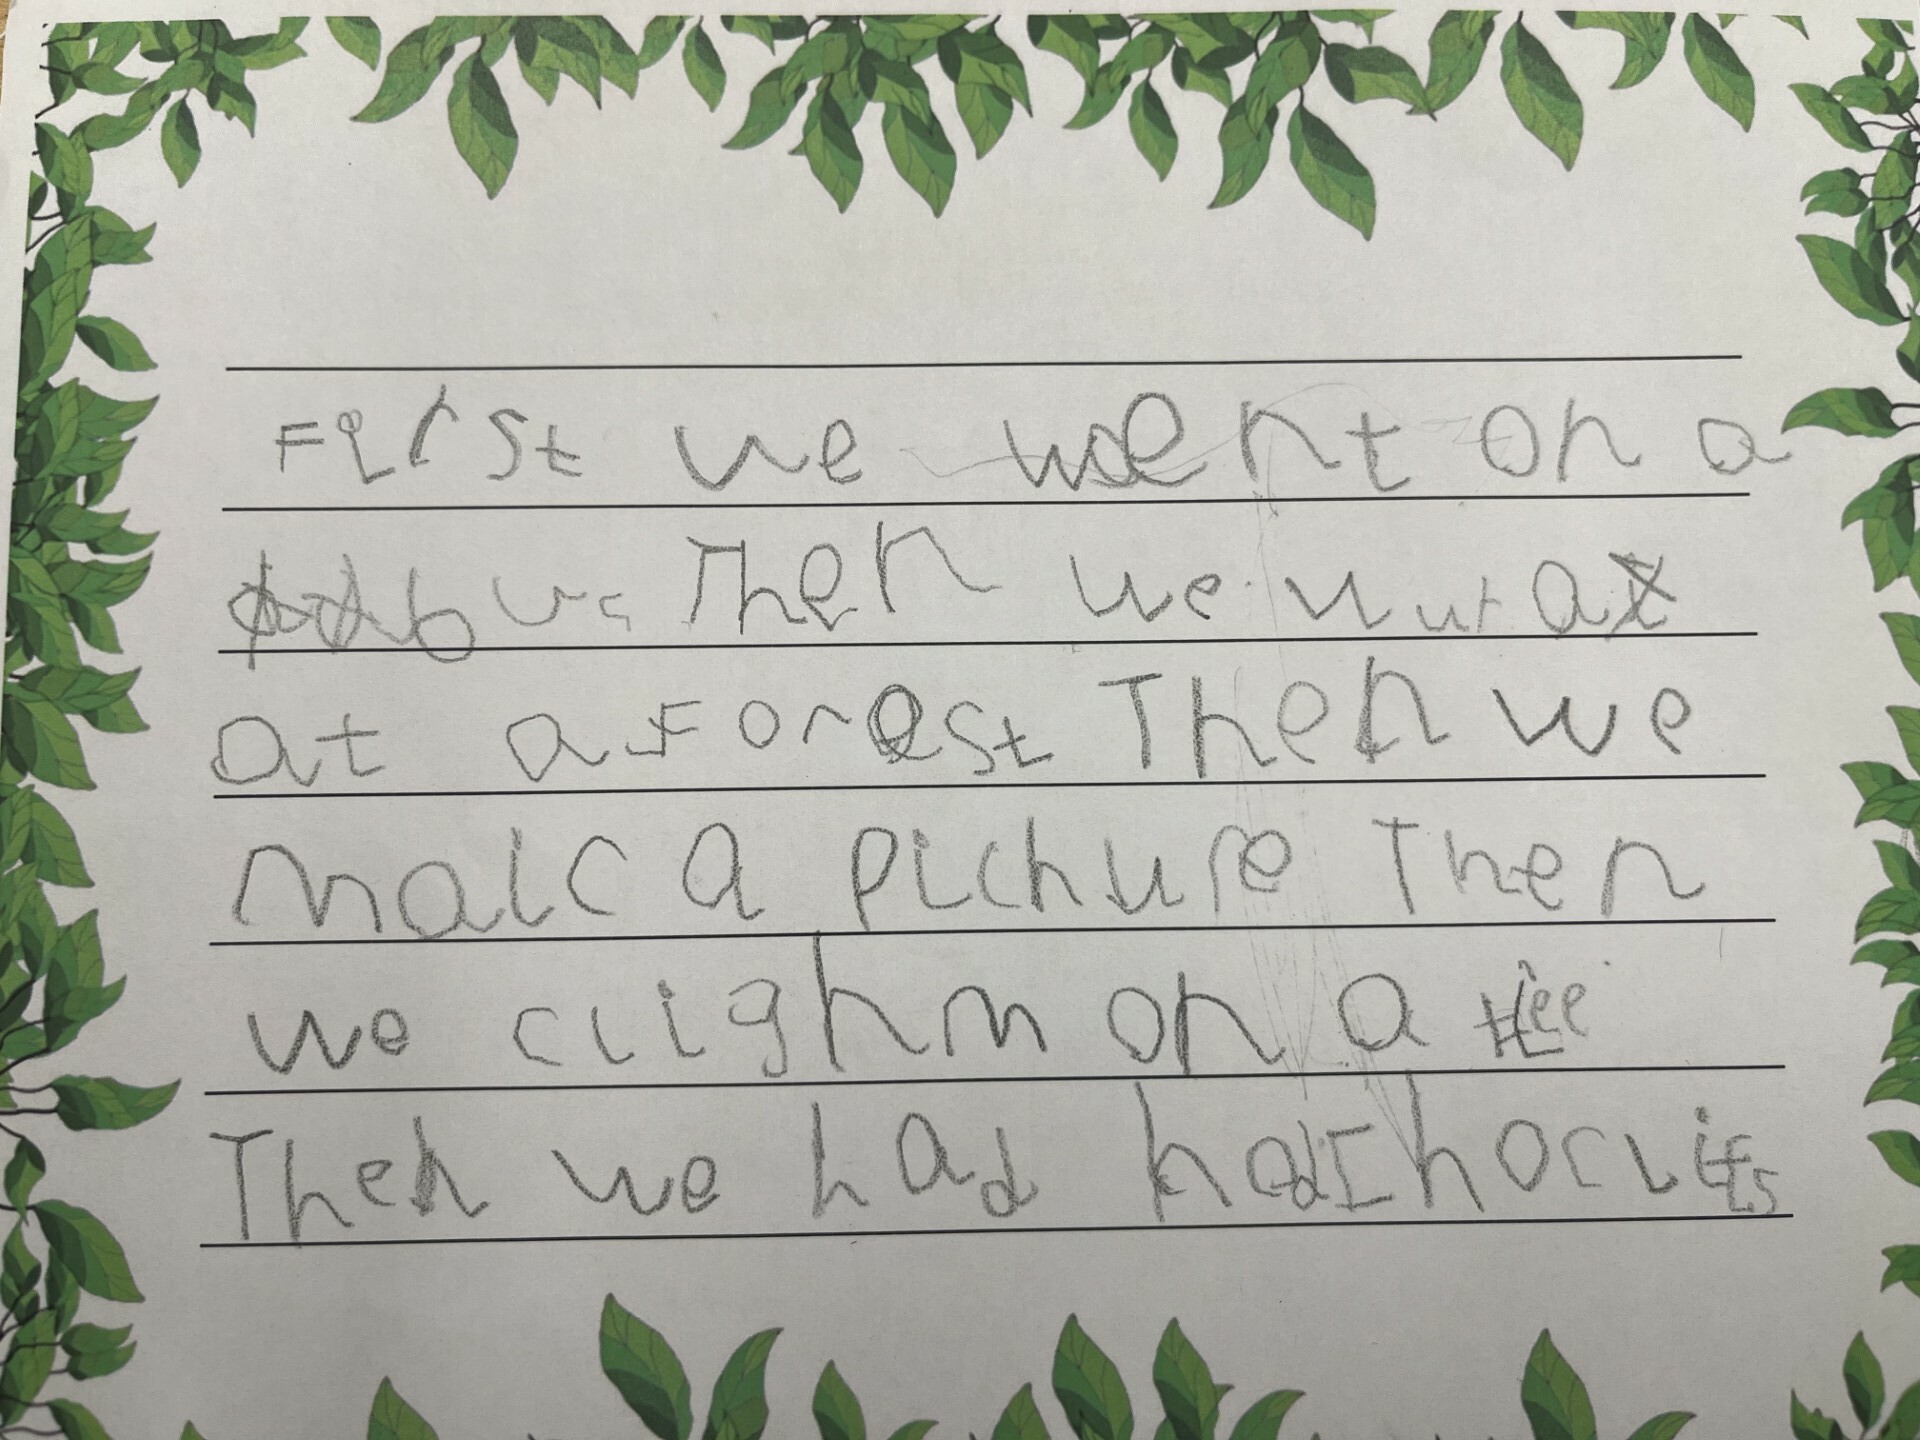 First we went on a
bus Then we wut
at a Forest Then we
maic a Pichure Then
we clighm on a tree
Then we had hotchoclits